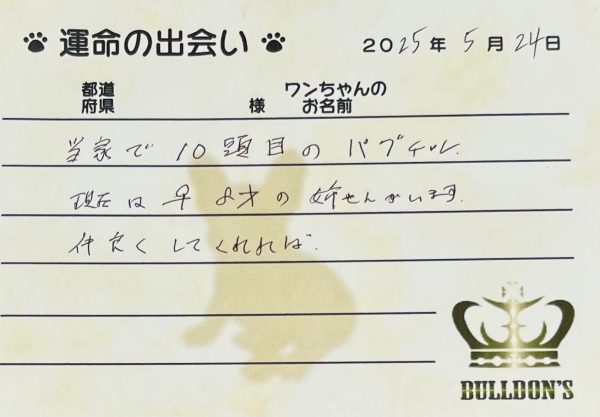 運命の出会い 2025年5月24日
都道府県 様 ワンちゃんのお名前
当家で10頭目のパプチル.
現在は♀8才の姉さんがいます.
仲良くしてくれれば.
BULLDON'S